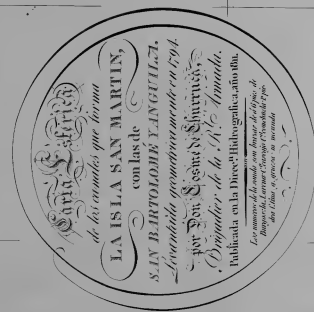 Carta Esférica
de los canales que forma
LA ISLA SAN MARTIN,
con las de
SAN BARTOLOMÉ Y ANGUILA.
Levantada geometricamente en 1794.
por Don Cosme de Churruca,
Brigadier de la Rl. Armada.
Publicada en la Direcn. Hidrografica, año 1811.
Los numeros de la sonda son brazas de